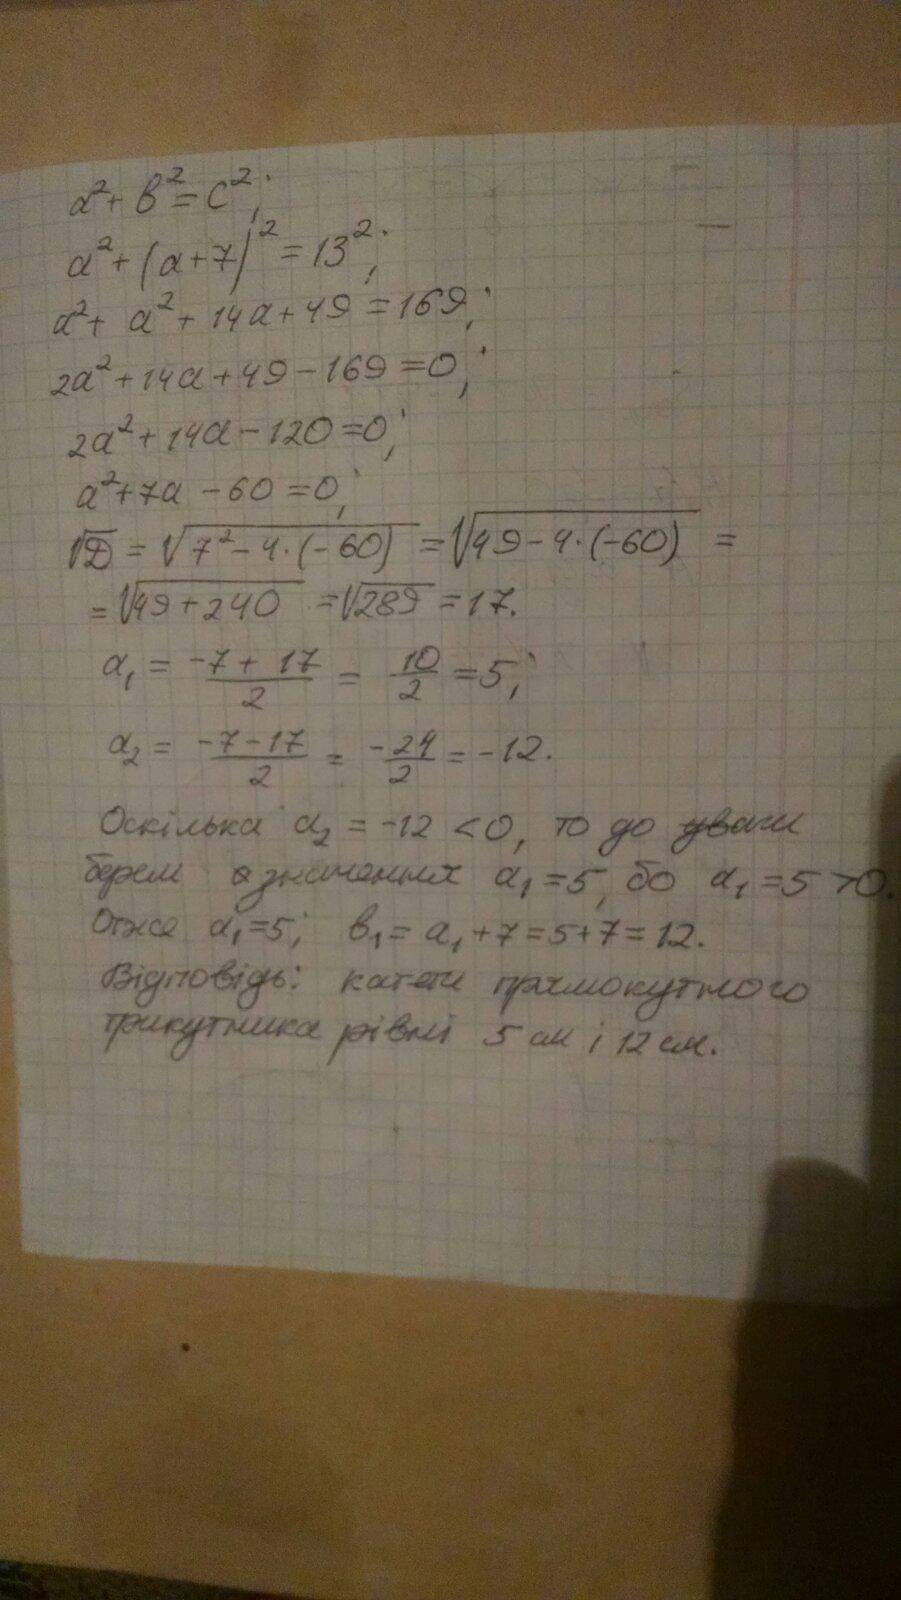 a² + b² = c²;
a² + (a+7)² = 13²;
a² + a² + 14a + 49 = 169;
2a² + 14a + 49 - 169 = 0;
2a² + 14a - 120 = 0;
a² + 7a - 60 = 0;
√D = √(7² - 4·(-60)) = √(49 - 4·(-60)) =
= √(49 + 240) = √289 = 17.
a₁ = (-7 + 17)/2 = 10/2 = 5;
a₂ = (-7 - 17)/2 = -24/2 = -12.
Оскілька a₂ = -12 < 0, то до уваги
берем значення a₁ = 5, бо a₁ = 5 > 0.
Отже a₁ = 5; b₁ = a₁ + 7 = 5 + 7 = 12.
Відповідь: катети прямокутного
трикутника рівні 5 см і 12 см.